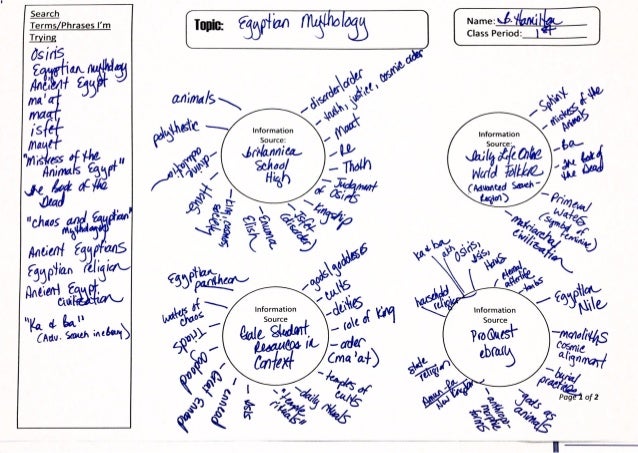 Search
Terms/Phrases I'm
Trying
Osiris
Egyptian mythology
Ancient Egypt
ma'at
maat
isfet
mayet
"Mistress of the
Animals Egypt"
The Book of the
Dead
"chaos and Egyptian
mythology"
Ancient Egyptians
Egyptian religion
Ancient Egypt
civilization
"Ka & ba"
(Adv. Search in ebrary)
Topic: Egyptian Mythology
Name: B. Hamilton
Class Period: 1st
Information
Source:
britannica
School
High
animals
polytheistic
disorder/order
truth, justice, cosmic order
Maat
Re
Thoth
Judgment
of Osiris
Kingship
isfet
(disorder)
Enuma
Elish
Information
Source:
Daily Life Online
World Folklore
(Advanced Search -
Region)
Sphinx
mistress of the
Animals
ba
The Book of
the Dead
Primeval
waters
(symbol of
feminine)
matriarchal
civilization
Information
Source
Gale Student
Resources in
Context
Egyptian
pantheon
waters of
chaos
Triads
Ogdoad
Great Ennead
ennead
isis
"temple
rituals"
daily rituals
temples of
cults
order
(ma'at)
role of King
deities
cults
gods/goddesses
Information
Source
ProQuest
ebrary
household
religion
ka & ba
akh
Osiris,
isis,
Horus
eternal
afterlife
tombs
Egyptian
Nile
monoliths
cosmic
alignment
burial
practices
gods as
animals
anthropo-
morphic
forms
Amun-Ra
New England
state
religion
Page 1 of 2